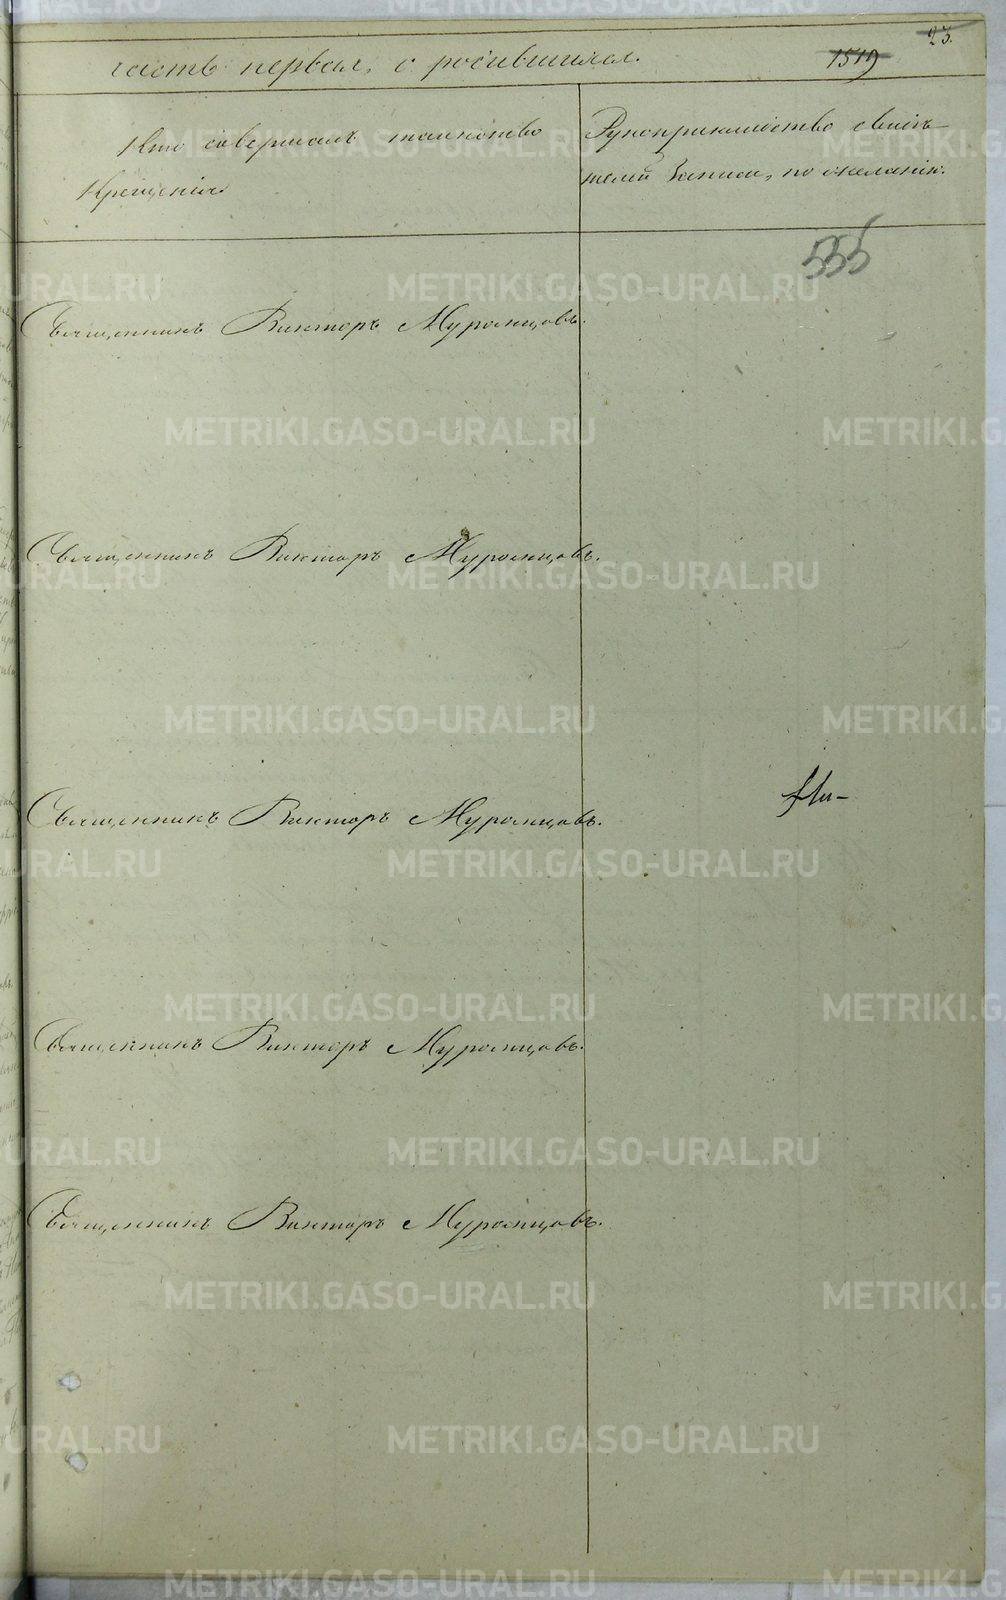 23.
часть первая, о родившихся.
1519
Кто совершалъ таинство
Крещенія
Рукоприкладство свидѣ-
телей записи, по желанію.
555
Священникъ Викторъ Муромцовъ.
Священникъ Викторъ Муромцовъ.
Священникъ Викторъ Муромцовъ.
Священникъ Викторъ Муромцовъ.
Священникъ Викторъ Муромцовъ.
METRIKI.GASO-URAL.RU